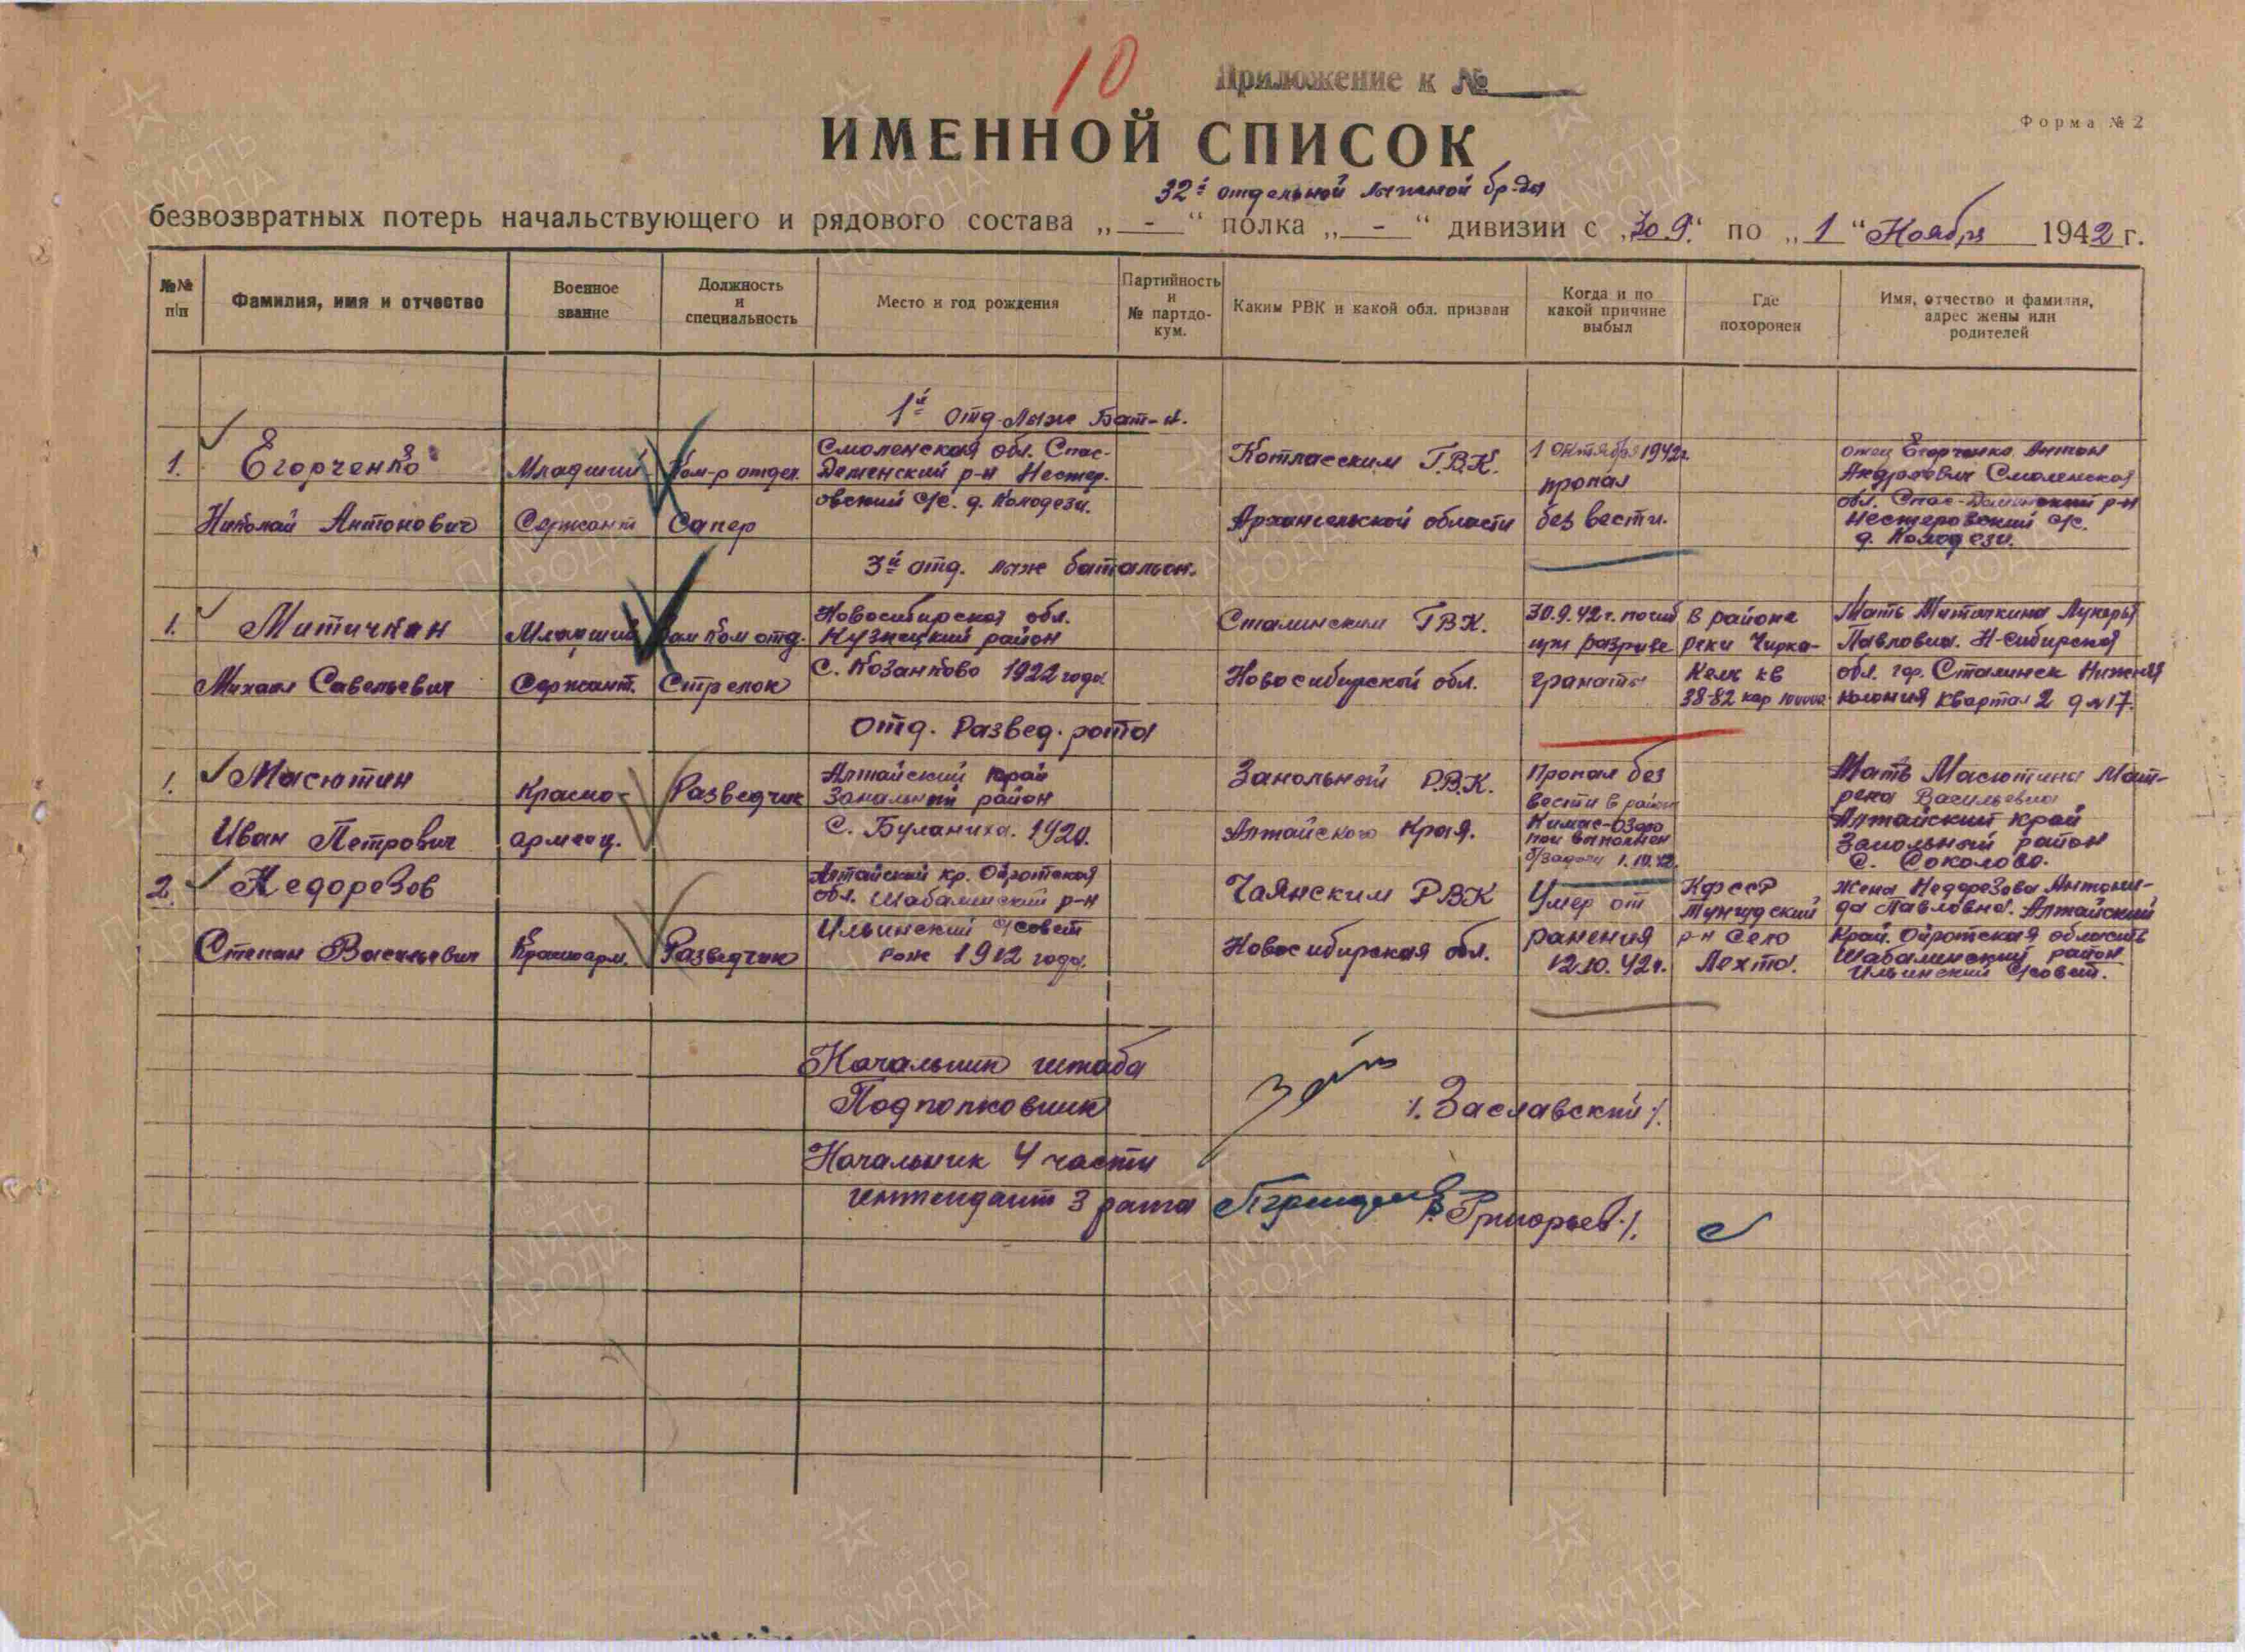 10
Приложение к №
ИМЕННОЙ СПИСОК
Форма № 2
32й отдельной лыжной бр-ды
безвозвратных потерь начальствующего и рядового состава „ - “ полка „ - “ дивизии с „30.9.“ по „1“ Ноября 1942 г.
№№ п/п
Фамилия, имя и отчество
Военное звание
Должность и специальность
Место и год рождения
Партийность и № партдокум.
Каким РВК и какой обл. призван
Когда и по какой причине выбыл
Где похоронен
Имя, отчество и фамилия, адрес жены или родителей
1й отд. лыже Бат-н.
1.
Егорченко
Николай Антонович
Младший
Сержант
Ком-р отдел.
Сапер
Смоленская обл. Спас-
Деменский р-н Нестер-
овский с/с. д. Колодези.
Котласским Г.В.К.
Архангельской области
1 октября 1942г.
пропал
без вести.
отец Егорченко Антон
Смоленская
обл. Спас-Деменский р-н
Нестеровский с/с.
д. Колодези.
3й отд. лыж батальон.
1.
Митичкин
Михаил Савельевич
Младший
Сержант.
Зам Ком отд.
Стрелок
Новосибирская обл.
Кузнецкий район
с. Козанково 1922 года
Сталинским ГВК.
Новосибирской обл.
30.9.42 г. погиб
при разрыве
гранаты
В районе
реки Чирка-
Кемь кв
38-82 кар 100000
Мать Митичкина Лукерья
Павловна. Н-Сибирская
обл. гор. Сталинск Нижняя
колония квартал 2 д №17.
Отд. Развед. рота
1.
Масютин
Иван Петрович
Красно-
армеец.
Разведчик
Алтайский край
Зональный район
С. Буланиха. 1920.
Занольный Р.В.К.
Алтайского Края.
Пропал без
вести в район
Кимас-Озеро
при выполнен
б/задачи 1.10.42.
Мать Масютина Мат-
рена Васильевна
Алтайский край
Занольный район
С. Соколово.
2.
Недорезов
Степан Васильевич
Красноарм.
Разведчик
Алтайский кр. Ойротская
обл. Шабалинский р-н
Ильинский с/совет
рож 1912 года.
Чаянским РВК
Новосибирская обл.
Умер от
ранения
12.10.42г.
КфССР
Тунгудский
р-н Село
Лехта.
Жена Недорезова Антони-
да Павловна. Алтайский
Край. Ойротская область
Шабалинский район
Ильинский с/совет.
Начальник штаба
Подполковник
/. Заславский /.
Начальник 4 части
интендант 3 ранга
/. Григорьев /.
ПАМЯТЬ
НАРОДА